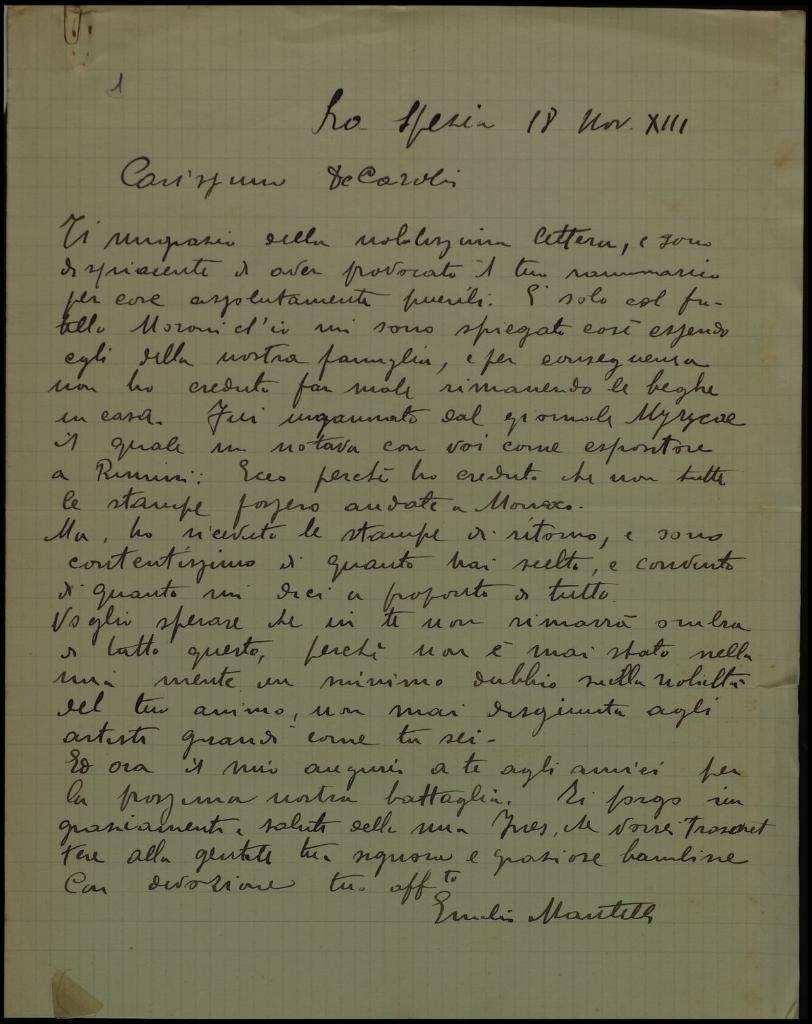 1
La Spezia 18 Nov. XIII
Carissimo De Carolis
Ti ringrazio della nobilissima lettera, e sono
dispiacente di aver provocato il tuo rammarico
per cose assolutamente puerili. È solo col fra-
tello Moroni ch'io mi sono spiegato così essendo
egli della nostra famiglia, e per conseguenza
non ho creduto far male rimanendo le beghe
in casa. Fui ingannato dal giornale Myrycae
il quale mi notava con voi come espositore
a Rimini: Ecco perchè ho creduto che non tutte
le stampe fossero andate a Monaco.
Ma, ho ricevuto le stampe di ritorno, e sono
contentissimo di quanto hai scelto, e convinto
di quanto mi dici a proposito di tutto.
Voglio sperare che in te non rimarrà ombra
di tutto questo, perchè non è mai stato nella
mia mente un minimo dubbio sulla nobiltà
del tuo animo, non mai disgiunta agli
artisti grandi come tu sei.
Ed ora il mio augurio a te agli amici per
la prossima nostra battaglia. Ti porgo rin
graziamenti e saluti della mia Ines, che vorrai trasmet
tere alla gentile tua signora e graziose bambine
Con devozione tuo aff.to
Emilio Mantelli